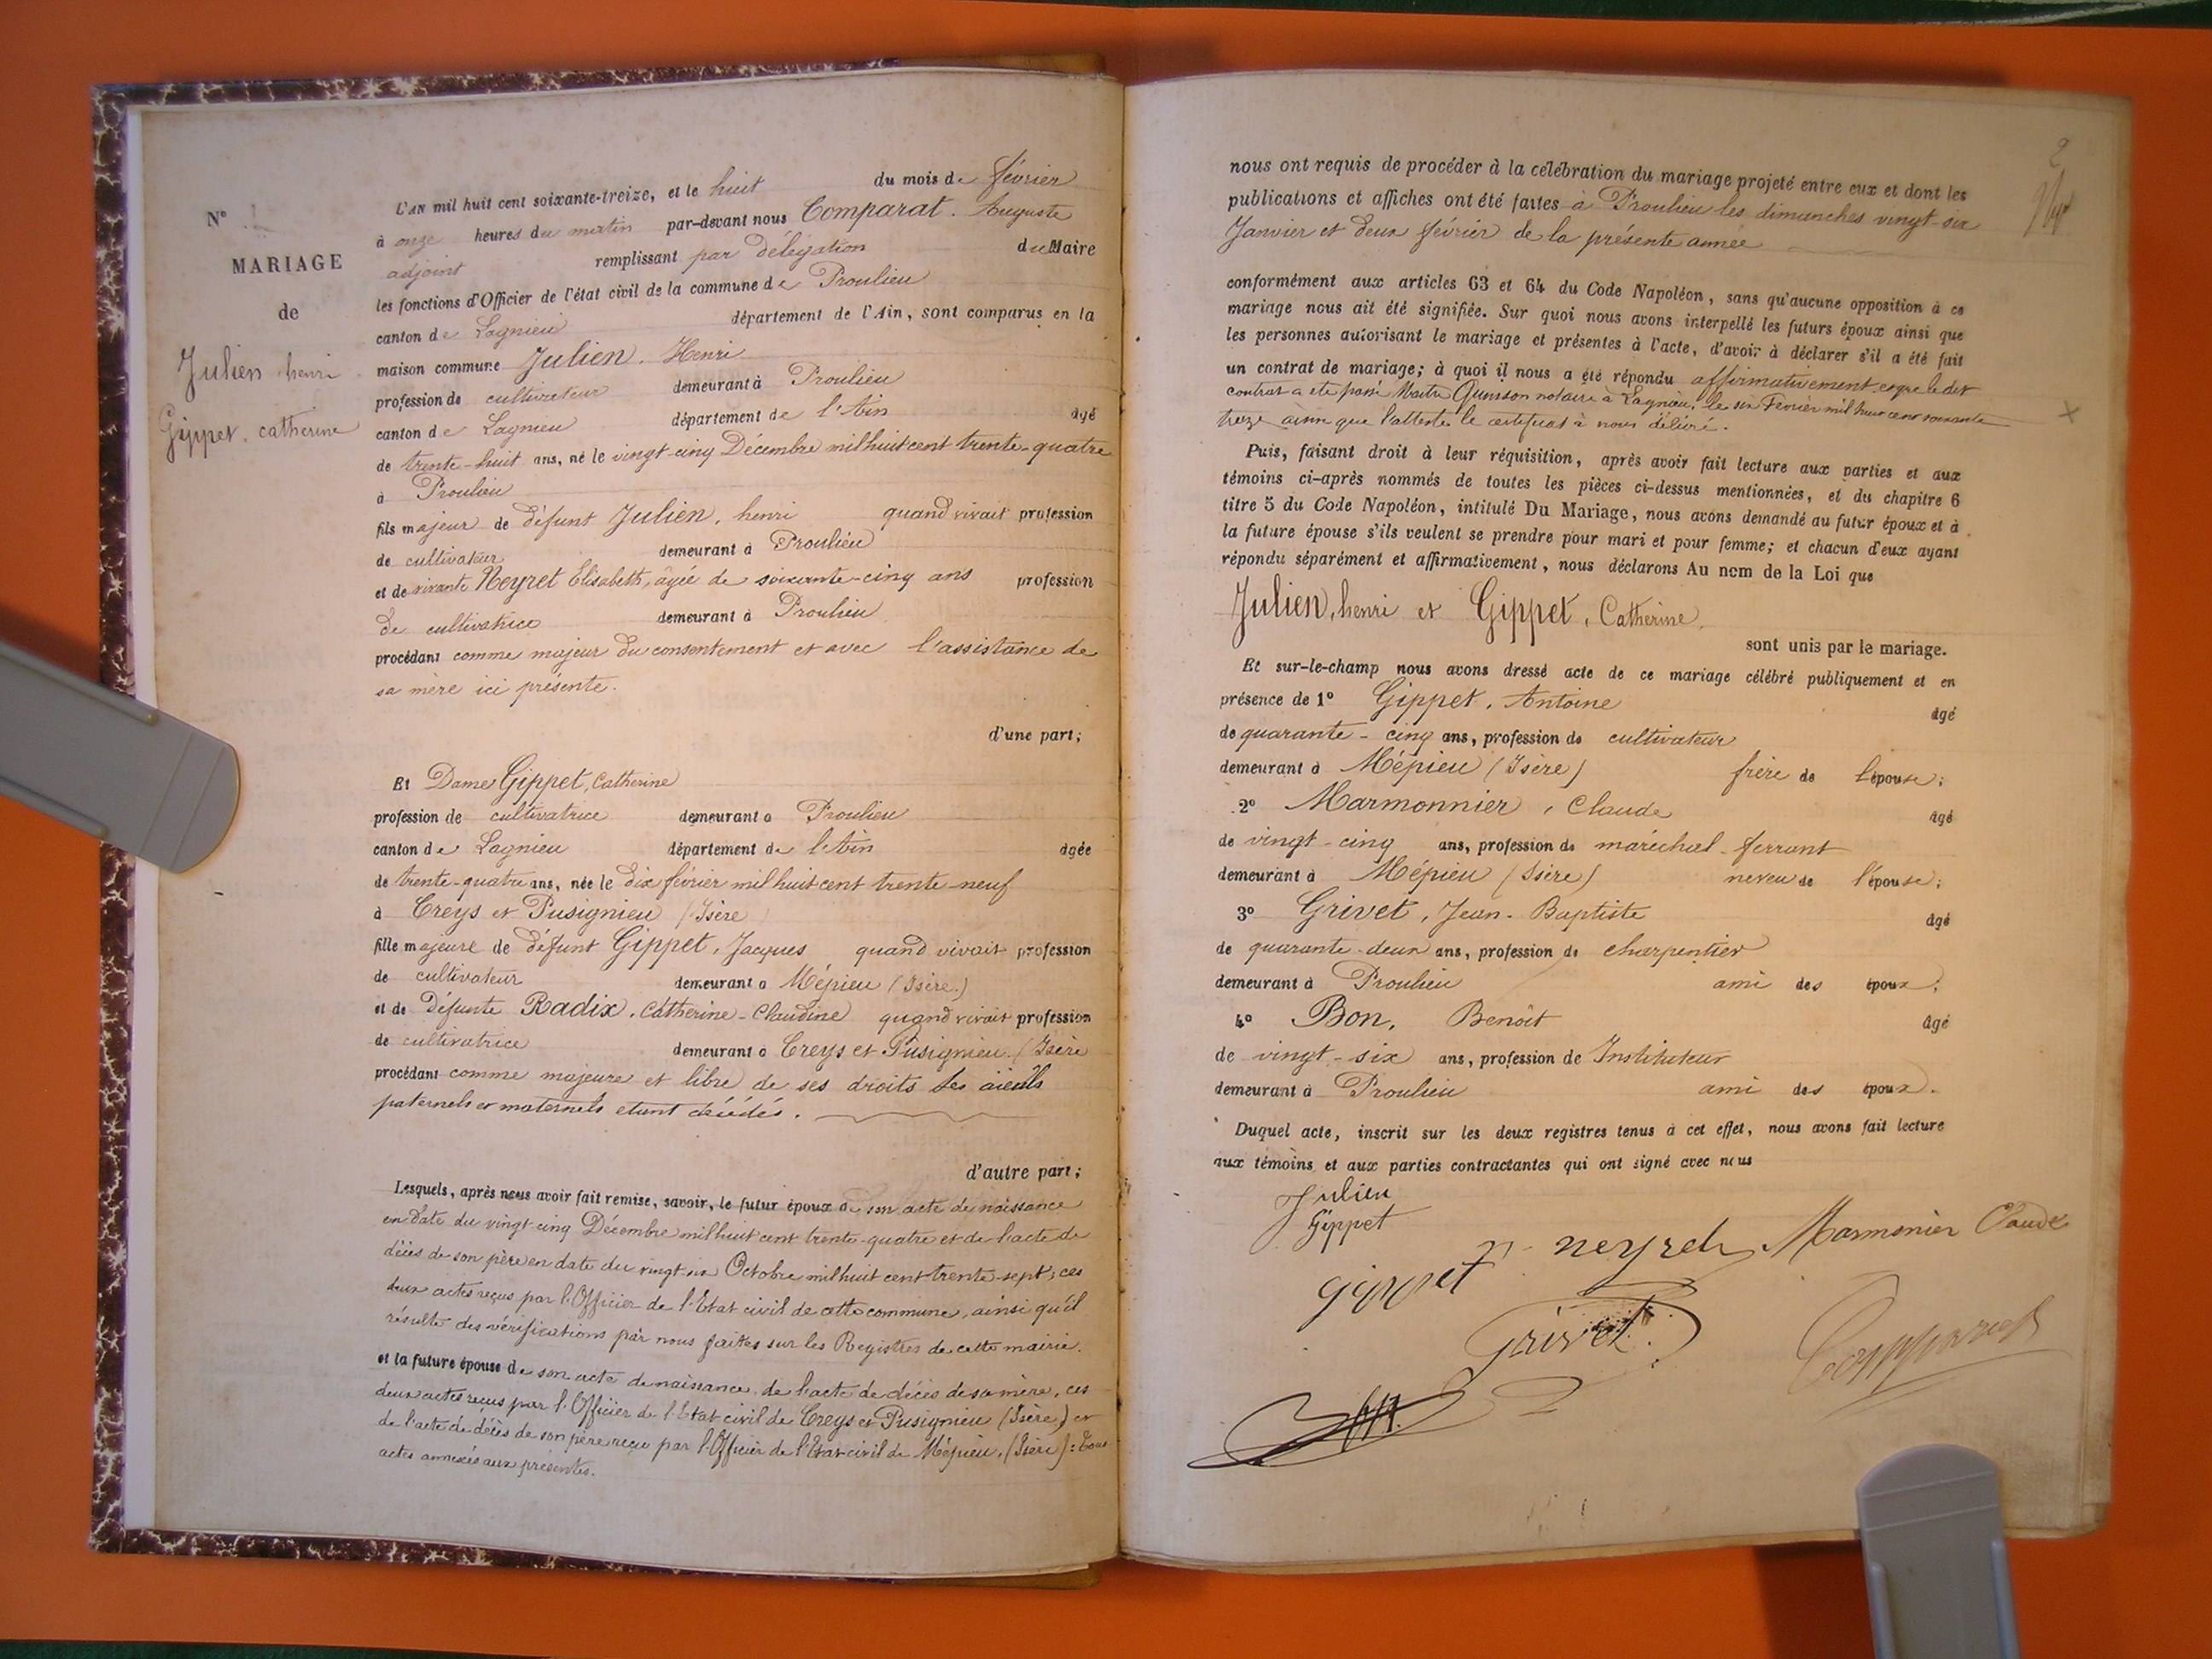 N° 1
MARIAGE
de
Julien henri
Gippet, catherine
L'AN mil huit cent soixante-treize, et le huit du mois de février
à onze heures du matin par-devant nous Comparat. Auguste
adjoint remplissant par délégation du Maire
les fonctions d'Officier de l'état civil de la commune de Proulieu
canton de Lagnieu département de l'Ain, sont comparus en la
maison commune Julien. Henri
profession de cultivateur demeurant à Proulieu
canton de Lagnieu département de l'Ain âgé
de trente-huit ans, né le vingt cinq Décembre mil huit cent trente-quatre
à Proulieu
fils majeur de défunt Julien, henri quand vivait profession
de cultivateur demeurant à Proulieu
et de vivante Neyret Elisabeth, âgée de soixante-cinq ans profession
de cultivatrice demeurant à Proulieu
procédant comme majeur du consentement et avec l'assistance de
sa mère ici présente.
d'une part;
Et Dame Gippet, Catherine
profession de cultivatrice demeurant à Proulieu
canton de Lagnieu département de l'Ain âgée
de trente-quatre ans, née le dix février mil huit cent trente-neuf
à Creys et Pusignieu (Isère)
fille majeure de défunt Gippet, Jacques quand vivait profession
de cultivateur demeurant à Mépieu (Isère.)
et de défunte Radix, Catherine-Claudine quand vivait profession
de cultivatrice demeurant à Creys et Pusignieu (Isère
procédant comme majeure et libre de ses droits les aïeuls
paternels et maternels étant décédés.
d'autre part;
Lesquels, après nous avoir fait remise, savoir, le futur époux de son acte de naissance
en date du vingt cinq Décembre mil huit cent trente-quatre et de l'acte de
décès de son père en date du vingt-six Octobre mil huit cent trente-sept; ces
deux actes reçus par l'Officier de l'Etat civil de cette commune, ainsi qu'il
résulte des vérifications par nous faites sur les Registres de cette mairie.
et la future épouse de son acte de naissance de l'acte de décès de sa mère, ces
deux actes reçus par l'Officier de l'Etat civil de Creys et Pusignieu (Isère) et
de l'acte de décès de son père reçu par l'Officier de l'Etat civil de Mépieu, (Isère): tous
actes annexés aux présentes.
2
nous ont requis de procéder à la célébration du mariage projeté entre eux et dont les
publications et affiches ont été faites à Proulieu les dimanches vingt-six
Janvier et deux février de la présente année
conformément aux articles 63 et 64 du Code Napoléon, sans qu'aucune opposition à ce
mariage nous ait été signifiée. Sur quoi nous avons interpellé les futurs époux ainsi que
les personnes autorisant le mariage et présentes à l'acte, d'avoir à déclarer s'il a été fait
un contrat de mariage; à quoi il nous a été répondu affirmativement et que le dit
contrat a été passé Maitre notaire à Lagnieu, le six Février mil huit cent soixante
treize ainsi que l'atteste le certificat à nous délivré.
Puis, faisant droit à leur réquisition, après avoir fait lecture aux parties et aux
témoins ci-après nommés de toutes les pièces ci-dessus mentionnées, et du chapitre 6
titre 5 du Code Napoléon, intitulé Du Mariage, nous avons demandé au futur époux et à
la future épouse s'ils veulent se prendre pour mari et pour femme; et chacun d'eux ayant
répondu séparément et affirmativement, nous déclarons Au nom de la Loi que
Julien, henri et Gippet, Catherine,
sont unis par le mariage.
Et sur-le-champ nous avons dressé acte de ce mariage célébré publiquement et en
présence de 1° Gippet, Antoine âgé
de quarante-cinq ans, profession de cultivateur
demeurant à Mépieu (Isère) frère de l'épouse;
2° Marmonnier, Claude âgé
de vingt-cinq ans, profession de maréchal-ferrant
demeurant à Mépieu (Isère) neveu de l'épouse;
3° Grivet, Jean-Baptiste âgé
de quarante-deux ans, profession de charpentier
demeurant à Proulieu ami des époux;
4° Bon, Benoît âgé
de vingt-six ans, profession de Instituteur
demeurant à Proulieu ami des époux.
Duquel acte, inscrit sur les deux registres tenus à cet effet, nous avons fait lecture
aux témoins et aux parties contractantes qui ont signé avec nous
Julien
Gippet
neyret Marmonier Claude
gippet
Grivet
Comparat